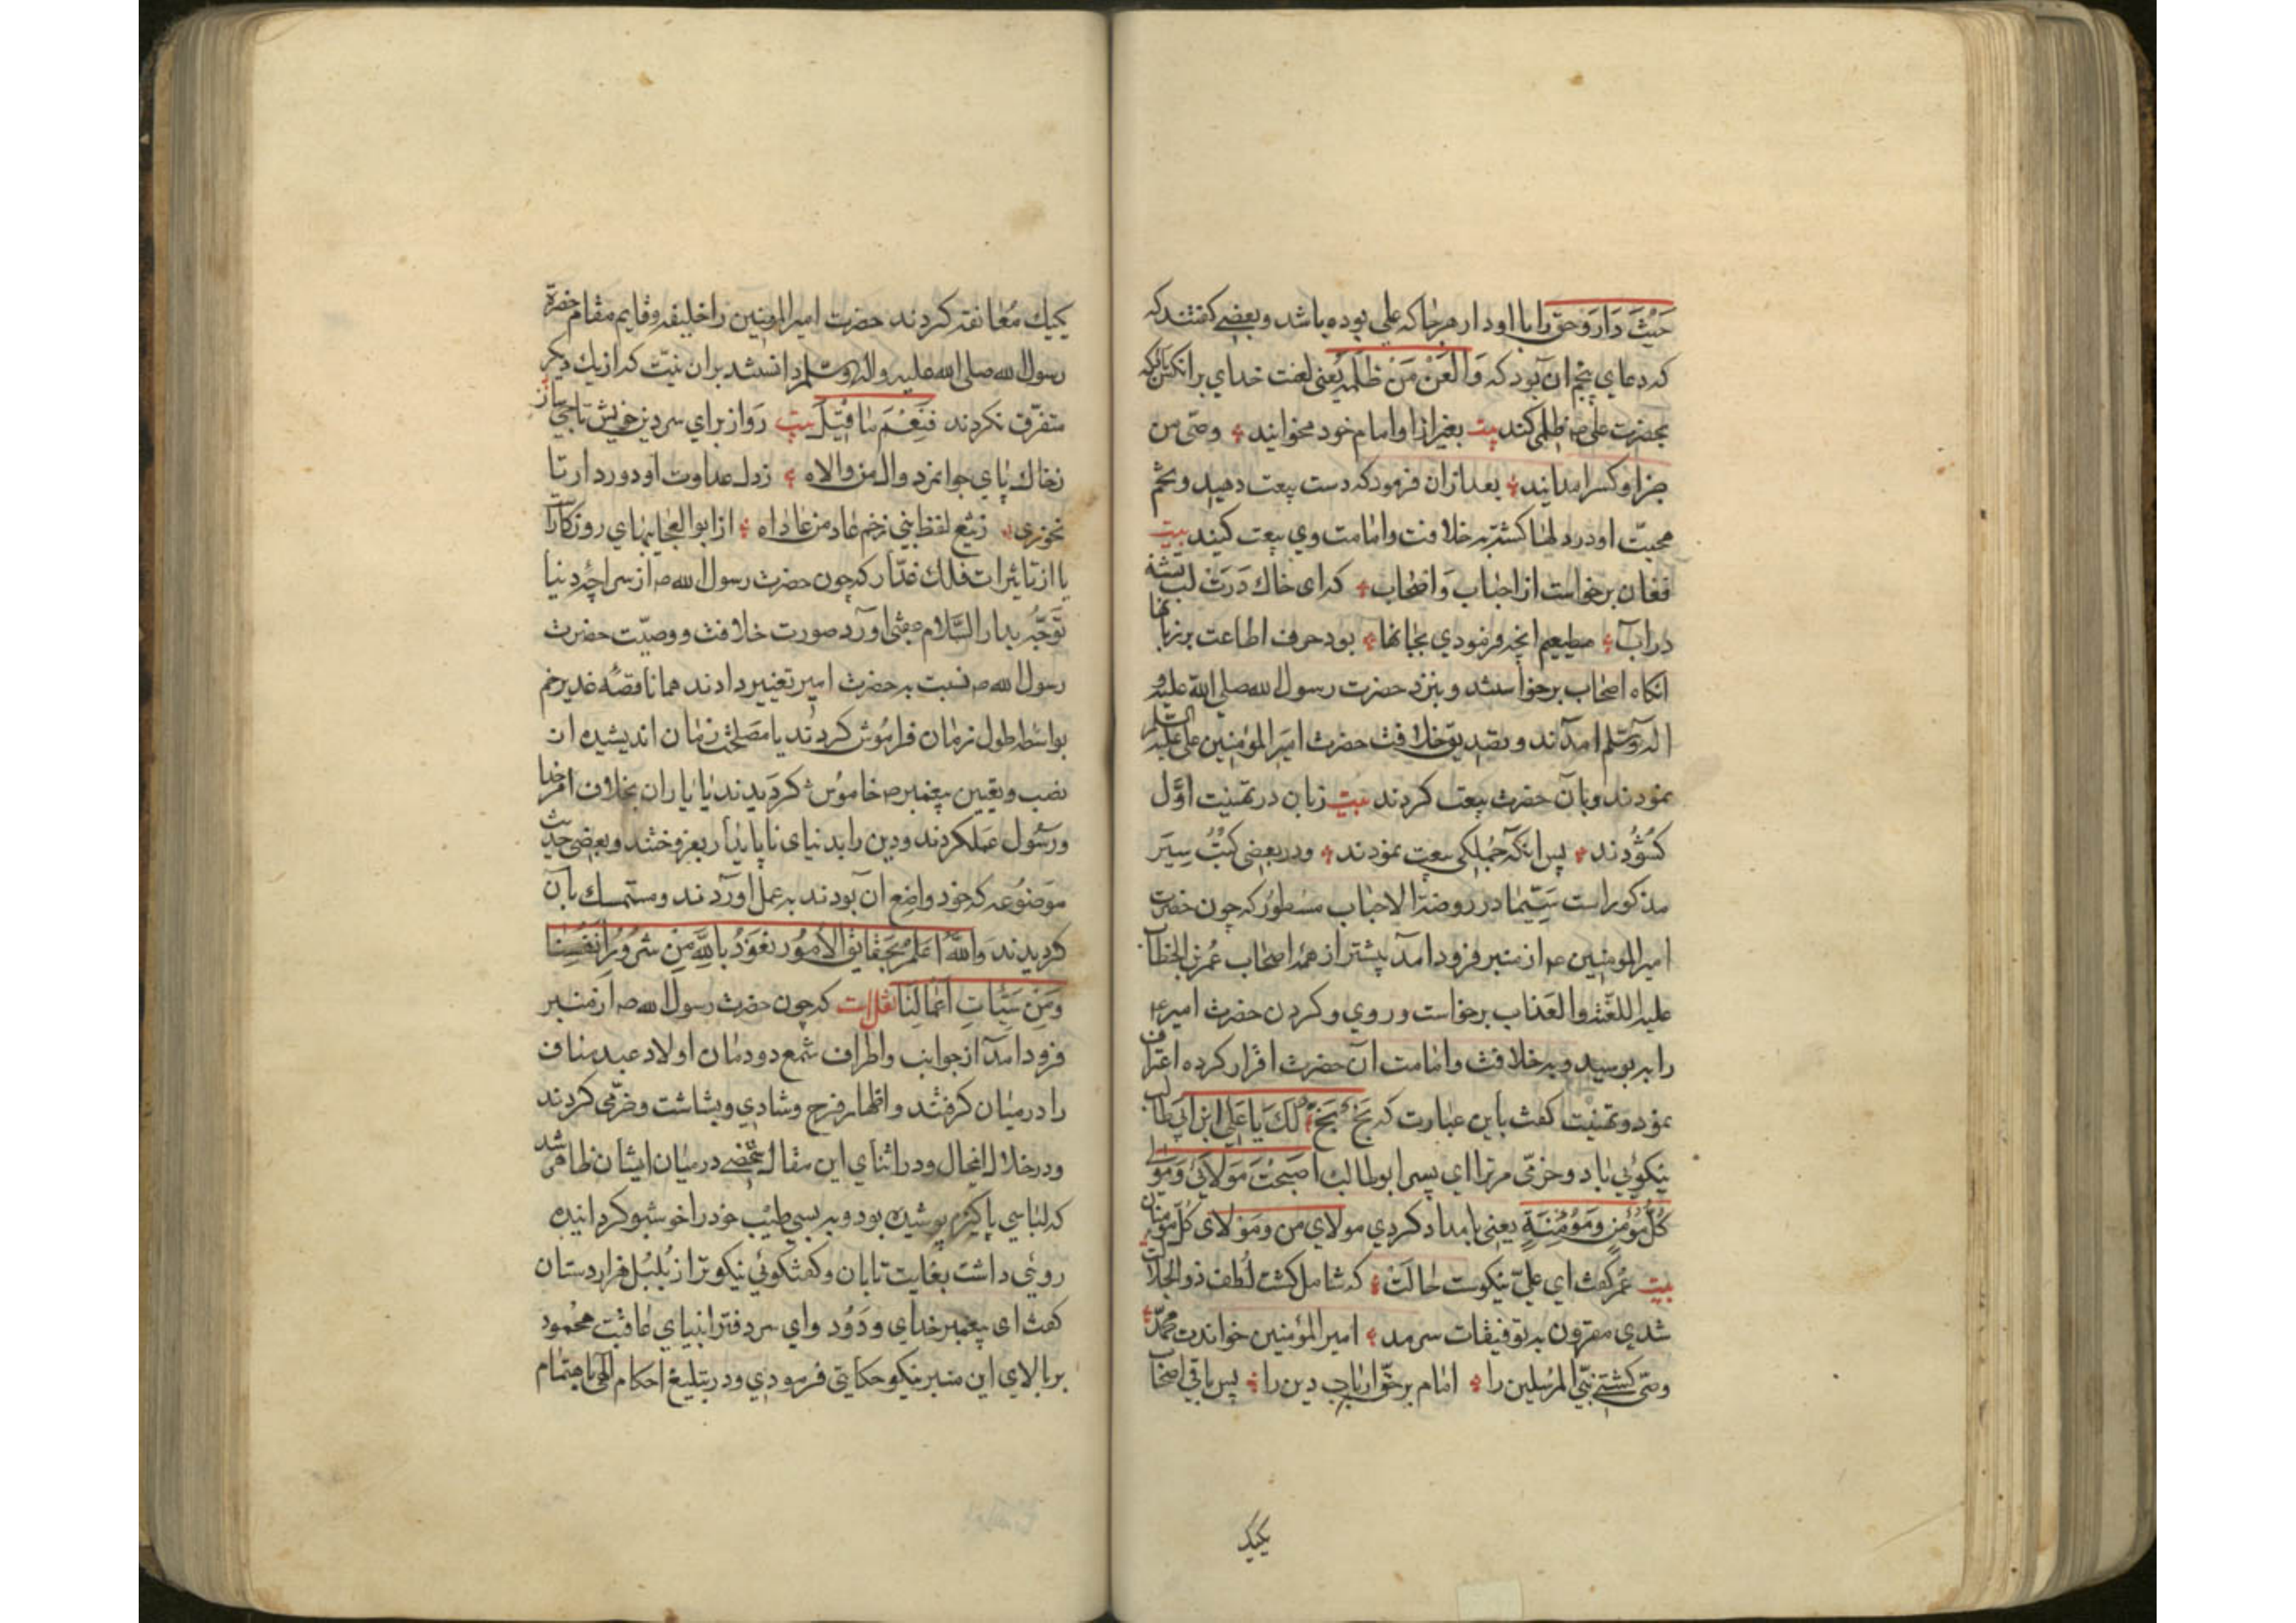 حَيْثَ دَارَ وحق را با او دار هرجا که علي بوده باشد و بعضے کفتند که
که دعاي پنجم ان بود که وَالْعَنْ مَنْ ظَلَمَهُ يعني لعنت خداي بر انکس باد که
بحضرت علي ص ظلمي کند بيت بغير از او امام خود مخوانيد وصّى من
جز او کسرا مدانيد بعد ازان فرمود که دست بيعت دهيد و تخم
محبّت او در دلها کشته به خلافت و امامت وي بيعت کيند بيت
فغان برخواست از احباب و اصحاب که اى خاک دَرَت لب تشنه
در اب مطيعم انچه فرمودي بجانها بود حرف اطاعت بر زبانها
انکاه اصحاب برخواستند و بنزد حضرت رسول الله صلي الله عليه و
اله وسلم امدند و بتصديق خلافت حضرت امير المؤمنين علي عليه السلم
نمودند و بان حضرت بيعت کردند بيت زبان در تهنيت اوّل
کشُودند پس انکه جُملکى بيعت نمودند و در بعضى کتُب سِيَر
مذکور است سيّما در روضة الاحباب مسطُور که چون حضرت
امير المومنين ع از منبر فرود امد پيشتر از همه اصحاب عُمر بن الخطاب
عليه اللعنة والعذاب برخواست و روي و کردن حضرت امير ع
را به بوسيد و به خلافت و امامت ان حضرت اقرار کرده اعتراف
نمود و تهنيت کفت باين عبارت که بَخٍ بَخٍ لَكَ يَا عَلِي ابن ابيطالب
نيکوئي باد و خرّمى مر ترا اي پسر ابو طالب اصبحْتَ مَولايَ وَمَولى
کُلِّ مُؤمِنٍ ومَؤمِنَةٍ يعنى بامداد کردي مولاي من و مَولاى کُلّ مؤمنان
بيت عُمر کفت اي علي نيکوست حالت که شامل کشت لُطف ذو الجلالت
شدي مقرون به توفيقات سرمد امير المؤمنين خواندت محمّد
وصّى کشتے نبّي المرسلين را امام برحّق ارباب دين را پس باقي اصحاب
يکيک
يکيك مُعانقه کردند حضرت امير المومنين را خليفه و قايم مقام حضرة
رسول الله صلى الله عليه واله وسلم دانستند بران نيّت که از يك ديکر
متفرّق نکردند فَنِعْمَ مٰا قِيْلَ بيت رَو از براي سر دين خويش تاجي ساز
زخاك پاي جوانمرد وال من والاه زدل عداوت او دور دار تا
نخوري زتيغ لفظ نبي زخم عاد من عاداه از ابو العجايبهاي روزکارست
يا از تاثيرات فلك غدّار که چون حضرت رسول الله ص از سراچهٔ دنيا
تَوجّه بدار السّلام عقبى اورد صورت خلافت و وصيّت حضرت
رسول الله ص نسبت به حضرت امير تغيير دادند همانا قصّهٔ غدير خم
بواسطه طول زمان فرامُوش کردند يا مصلحت زمان انديشيده از
نصب و تعيين پيغمبر ص خاموُش کرديدند يا ياران بخلاف امر خدا
و رسُول عمل کردند و دين را بدنياى ناپايدار بفروختند و بعضى حديث
موضُوعه که خود واضِع ان بودند به عمل اوردند و مستمسك بان
کرديدند وَاللهُ اَعلمُ بحَقايق الاُمُور نعُوَذُ بِاللهِ مِنْ شرُورِ اَنفُسِنا
وَمَنْ سَيّئاتِ اعمالِنَا نقل است که چون حضرت رسول الله ص از منبر
فرود امد از جوانب و اطراف شمع دودمان اولاد عبد مناف
را در ميان کرفتند و اظهار فرح و شادي و بشاشت و خرّمى کردند
و در خلال اينحال و در اثناي اين مقال شخصے در ميان ايشان ظاهر شد
که لباسي پاکيزه پوشيده بود و به بسي طيْب خود را خوشبو کردانيده
روئي داشت بغايت تابان و کفتکوئي نيکوتر از بُلبُل هزاردستان
کفت اى پيغمبر خداي ودَوُد واي سر دفتر انبياي عاقبت محُمود
بر بالاي اين منبر نيکو حکايتى فرمودي و در بتليغ احکام الٓهي اهتمام